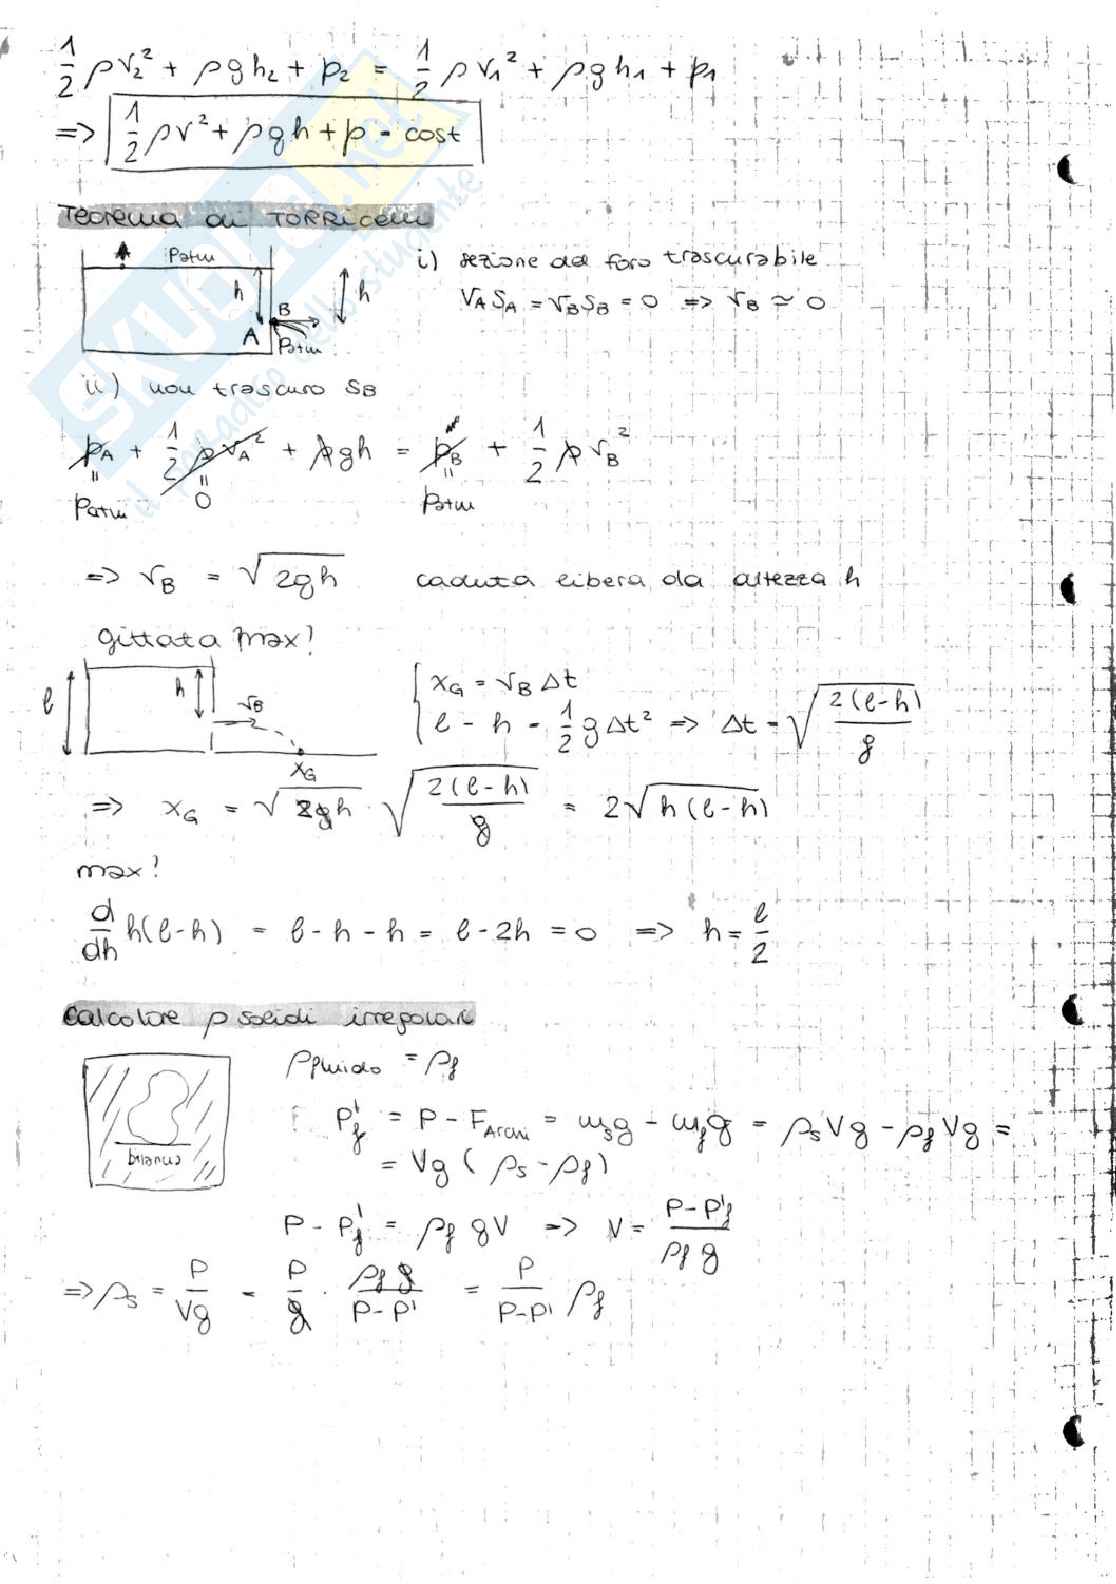 1/2 ρv₂² + ρgh₂ + p₂ = 1/2 ρv₁² + ρgh₁ + p₁
=> 1/2 ρv² + ρgh + p = cost
Teorema di TORRICELLI
A Patm
h h
B
A Patm
i) sezione del foro trascurabile
V_A S_A = v_B S_B = 0 => v_B ≃ 0
ii) non trascuro S_B
p_A + 1/2 ρv_A² + ρgh = p_B + 1/2 ρv_B²
Patm 0 Patm
=> v_B = √(2gh) caduta libera da altezza h
gittata max?
l h v_B
x_G
x_G = v_B Δt
l - h = 1/2 g Δt² => Δt = √(2(l-h)/g)
=> x_G = √(2gh) · √(2(l-h)/g) = 2√(h(l-h))
max?
d/dh h(l-h) = l - h - h = l - 2h = 0 => h = l/2
Calcolare ρ solidi irregolari
bilancia
ρfluido = ρ_f
P'_f = P - F_Archi = m_s g - m_f g = ρ_s V g - ρ_f V g =
= Vg (ρ_s - ρ_f)
P - P'_f = ρ_f g V => V = (P - P'_f)/(ρ_f g)
=> ρ_s = P/(Vg) = P/g · (ρ_f g)/(P - P') = P/(P-P') ρ_f
SKUOLA.net
il paradiso dello studente